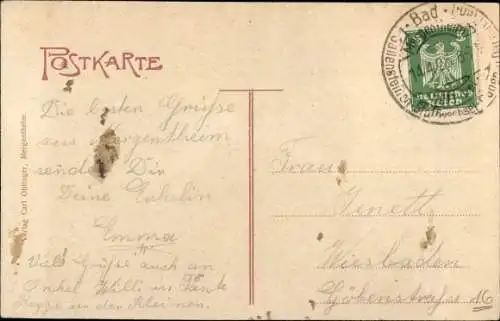 POSTKARTE
Die besten Grüße
aus Mergentheim
sendet Dir
Deine Enkelin
Emma
Viele Grüße auch an
Onkel Willi u. Tante
u. den Kleinen.
Frau
Jenett
Wiesbaden
Göbenstraße 16
Verlag Carl Ottinger, Mergentheim.
Bad
DEUTSCHES
REICH